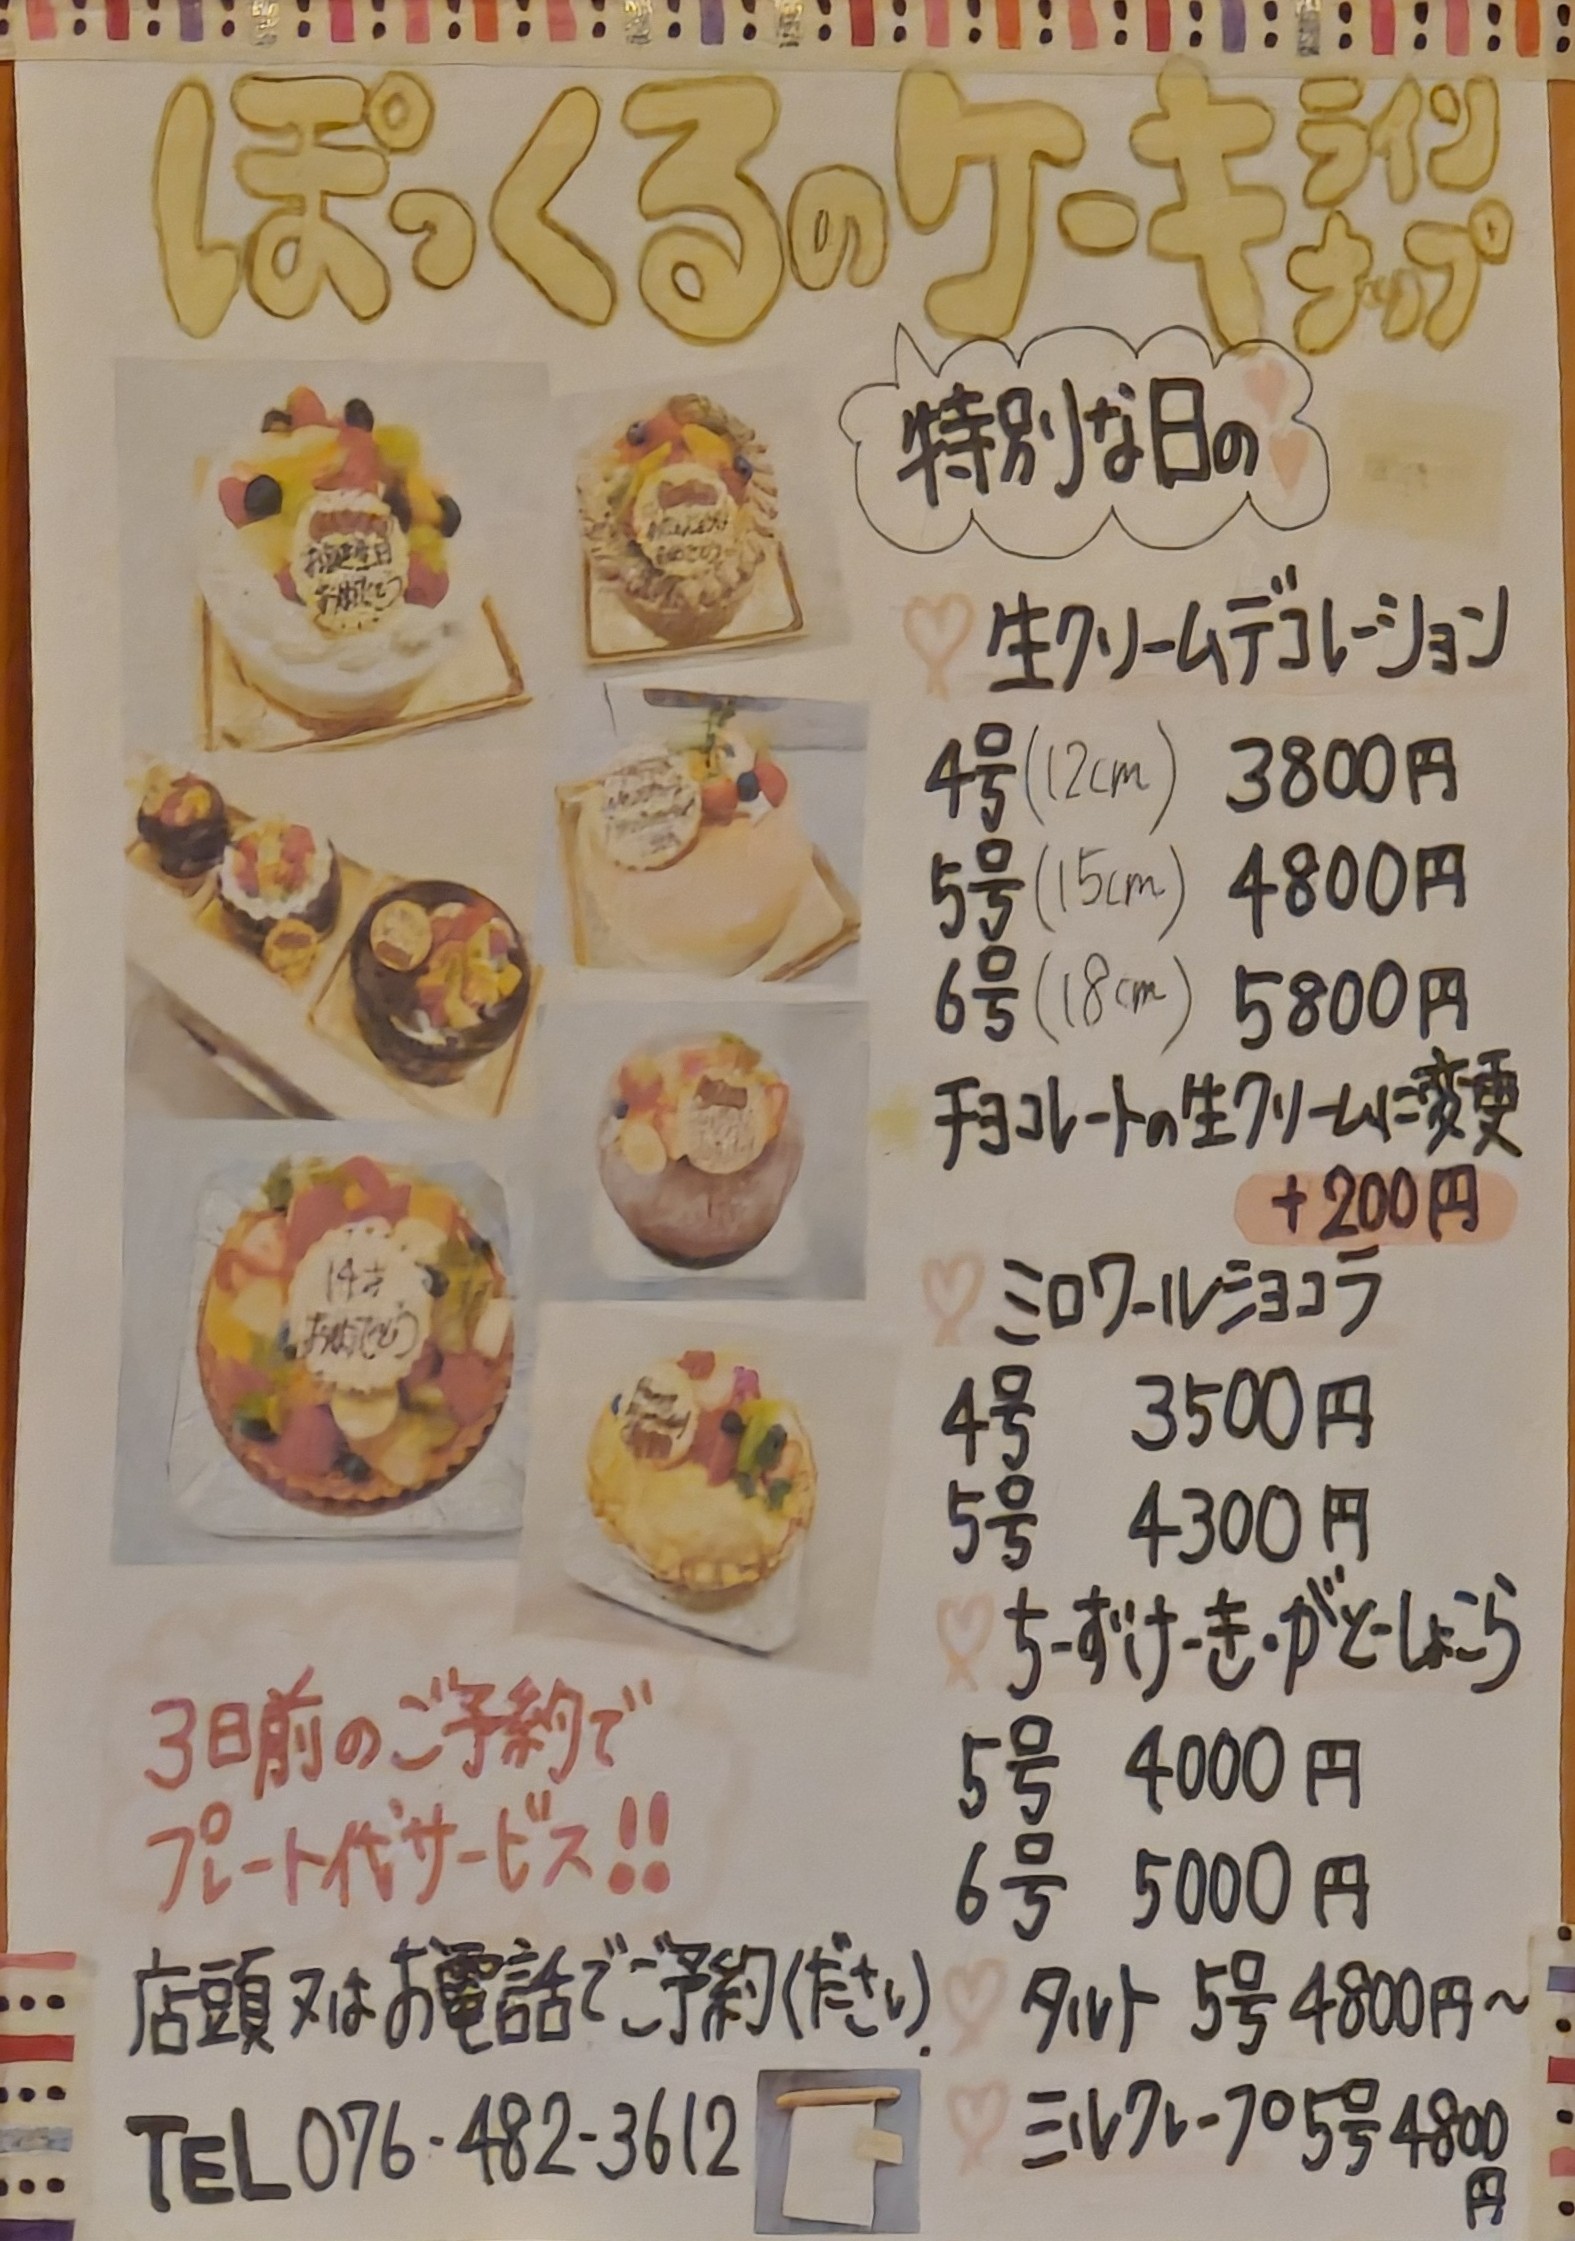 ぽっくるのケーキラインナップ
特別な日の
お誕生日
おめでとう
14才
おめでとう
生クリームデコレーション
4号(12cm) 3800円
5号(15cm) 4800円
6号(18cm) 5800円
チョコレートの生クリームに変更
+200円
ミロワールショコラ
4号 3500円
5号 4300円
ちーずけーき・がとーしょこら
5号 4000円
6号 5000円
タルト 5号 4800円~
ミルクレープ 5号 4800
円
3日前のご予約で
プレート代サービス!!
店頭又はお電話でご予約ください.
TEL 076-482-3612